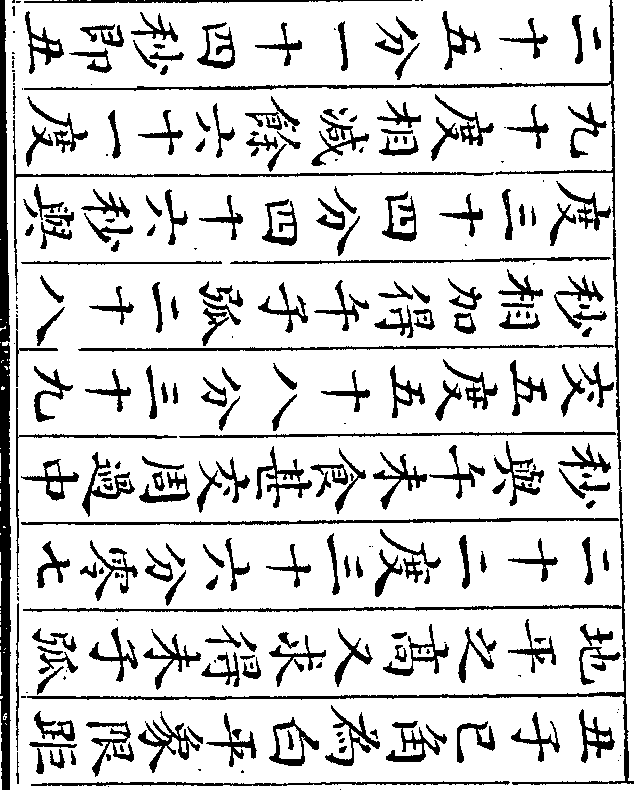 丑子己角為白平象限距
地平之高又求得未子弧
二十二度三十六分零七
秒與午未食甚交周過中
交五度五十八分三十九
秒相加得午子弧二十八
度三十四分四十六秒與
九十度相減餘六十一度
二十五分一十四秒即丑